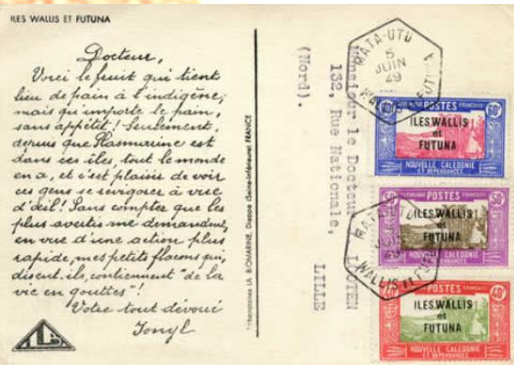 ILES WALLIS ET FUTUNA
Docteur,
Voici le fruit qui tient
lieu de pain à l'indigène;
mais qu'importe le pain,
sans appétit! Seulement,
depuis que Plasmarine est
dans ces îles, tout le monde
en a, et c'est plaisir de voir
ces gens se revigorer à vue
d'œil! Sans compter que les
plus avertis me demandent,
en vue d'une action plus
rapide, mes petits flacons qui,
disent-ils, contiennent "de la
vie en gouttes"!
Votre tout dévoué
Ionyl
LA BIOMARINE, Dieppe (Seine-Inférieure) FRANCE
Monsieur le Docteur
132, Rue Nationale,
LILLE
(Nord).
MATA-UTU
5
JUIN
49
POSTES
ILES WALLIS
et
FUTUNA
NOUVELLE CALEDONIE
ET DEPENDANCES
POSTES
50c
ILES WALLIS
et
FUTUNA
NOUVELLE CALEDONIE
ET DEPENDANCES
MATA-UTU
WALLIS ET FUTUNA
POSTES
40c
ILES WALLIS
et
FUTUNA
NOUVELLE CALEDONIE
ET DEPENDANCES